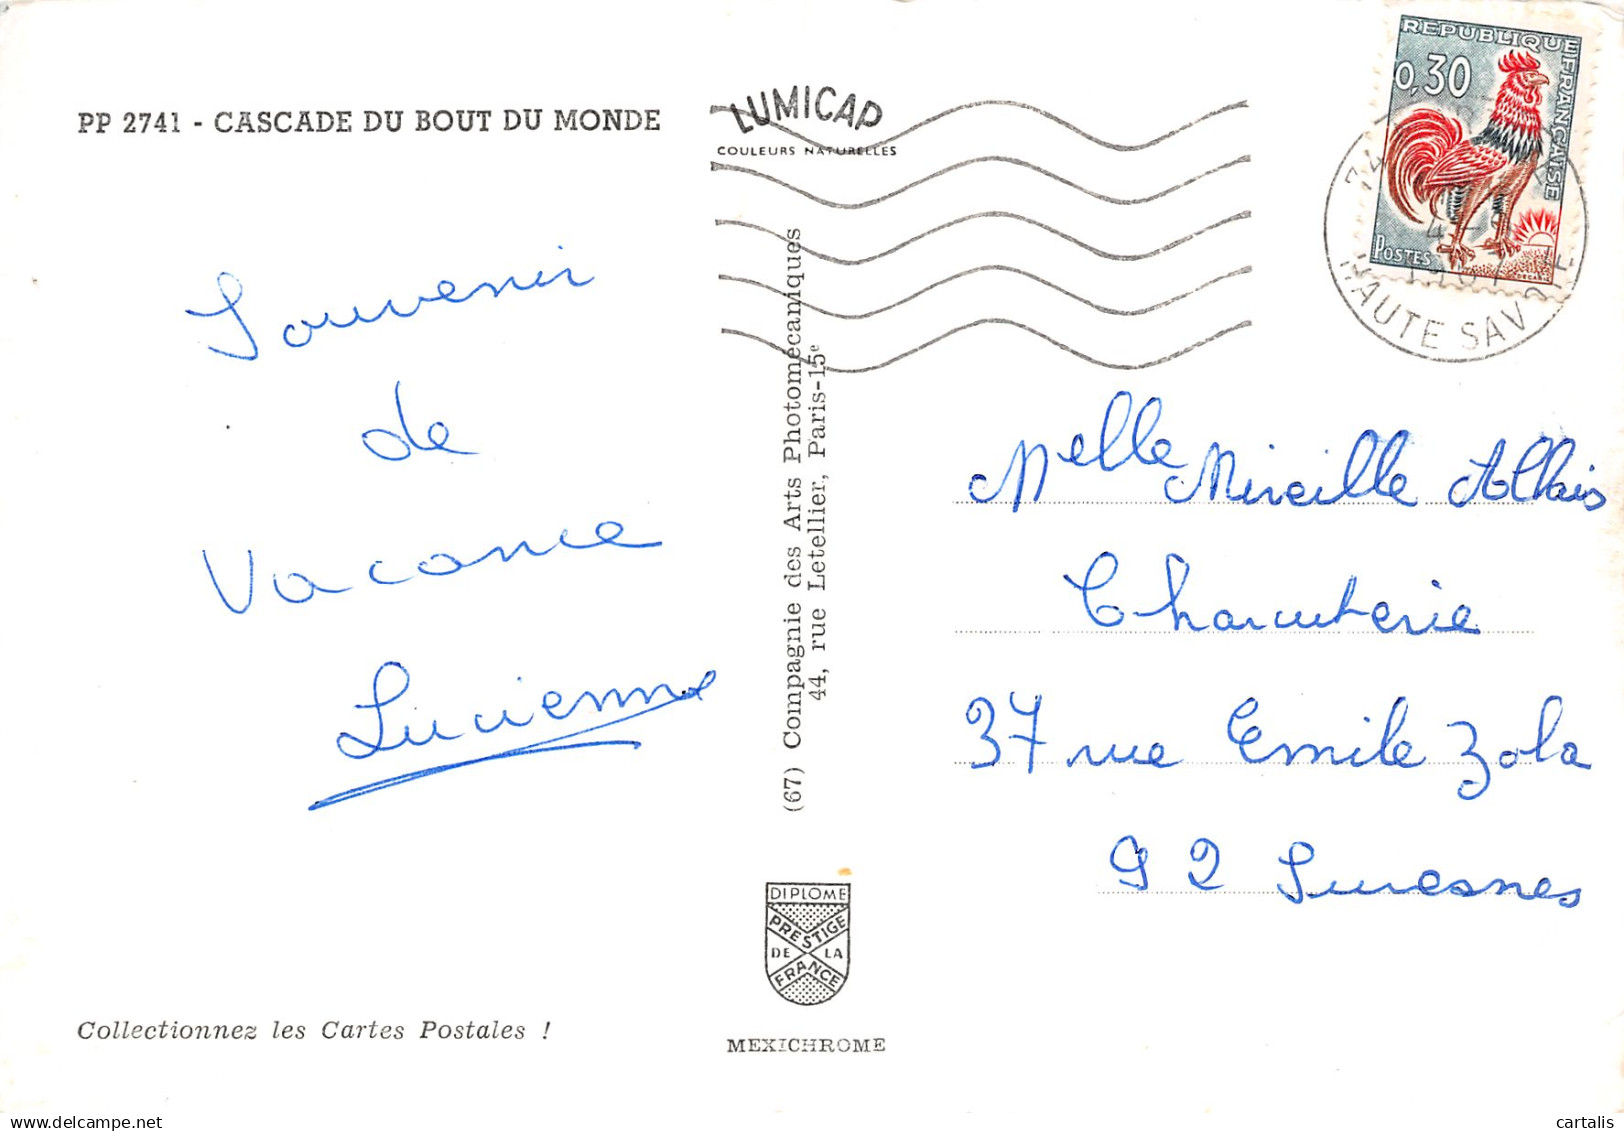 PP 2741 - CASCADE DU BOUT DU MONDE
LUMICAP
COULEURS NATURELLES
REPUBLIQUE FRANÇAISE
0,30
POSTES
DECARIS
74
HAUTE SAVOIE
Souvenir
de
Vacance
Lucienne
(67) Compagnie des Arts Photomécaniques
44, rue Letellier, Paris-15e
Melle Mireille Allais
Charcuterie
37 rue Emile Zola
92 Suresnes
DIPLOME
PRESTIGE
DE LA
FRANCE
MEXICHROME
Collectionnez les Cartes Postales !
delcampe.net
cartalis